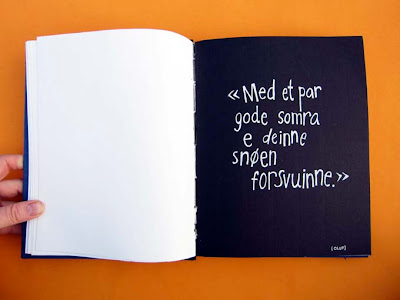 «Med et par
gode somra
e deinne
snøen
forsvuinne.»
[OLUF]